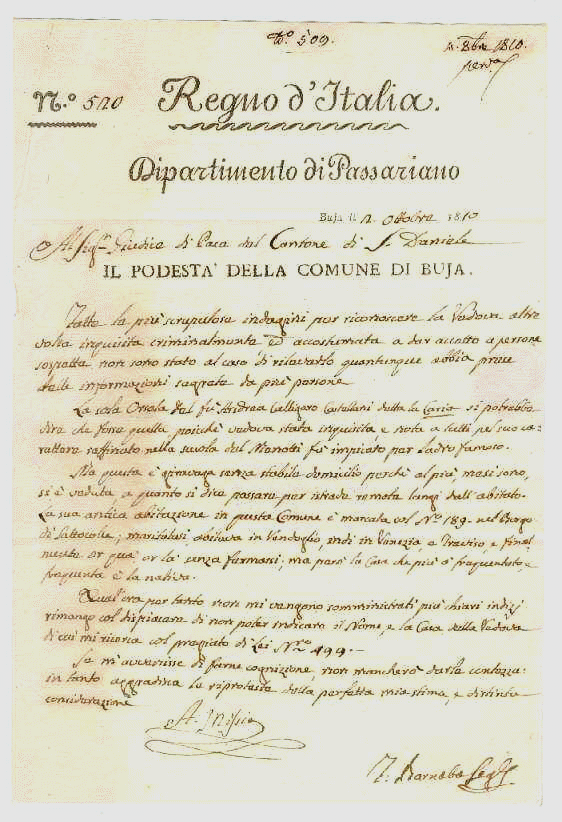 N.º 509.
2. 8bre 1810.
N.º 520 Regno d'Italia.
Dipartimento di Passariano
Buja li 2 ottobre 1810
Al Sigr Giudice di Pace del Cantone di S. Daniele
IL PODESTA' DELLA COMUNE DI BUJA.
Fatte le più scrupolose indagini per riconoscere la Vedova altre
volte inquisita criminalmente ed accostumata a dar accetto a persone
sospette non sono stato al caso di rilevarlo quantunque abbia preso
delle informazioni segrete da più persone
La sola Orsola del fù Andrea Calligaro Castellani detta la Caria si potrebbe
dire che fosse quella poichè vedova stata inquisita, e nota a tutti pel suo ca-
rattere raffinato nella scuola del Marotti fù impicato per ladro famoso.
Ma questa è girovaga senza stabile domicilio perchè al più, mesi sono,
si è veduta, a quanto si dice passare per istrade remote lungi dall'abitato.
La sua antica abitazione in questa Comune è marcata col Nº 189. nel Borgo
di Sottocolle; maritatasi, abitava in Vendoglio, indi in Venezia, a Treviso, e final-
mente or quà or là senza fermarsi, ma però la Casa che più à frequentato, e
frequenta è la nativa.
Qual'ora per tanto non mi vengano somministrati più chiari indizj
rimango col dispiacere di non poter indicare il Nome, e la Casa della Vedova
di cui mi ricerca col pregiato di Lei Nro 499.-
Se mi avvenisse di farne cognizione, non mancherò darle contezza:
in tanto aggradisca le riproteste della perfetta mia stima, e distinta
considerazione
T. Barnaba Segr